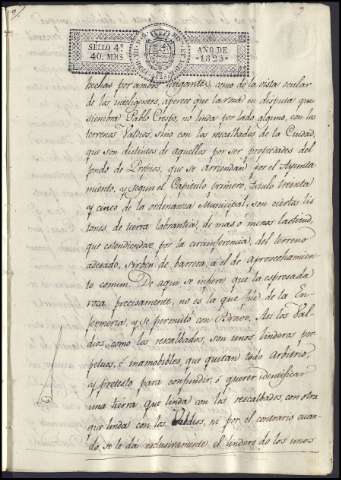 SELLO 4º
40. MRS
AÑO DE
1823
hechas por ambos litigantes, como de la vista ocular
de los inteligentes, aparece que la roza en disputa que
siembra Pablo Crespo, no linda por lado alguno, con los
terrenos Valdios, sino con los rescaldados de la Ciudad,
que son distintos de aquellos por ser propiedades del
fondo de Propios, que se arriendan por el Ayunta
miento, y segun el Capitulo primero, titulo treinta
y cinco de la ordenanza Municipal, son ciertos lis
tones de tierra labrantia, de mas o menos latitud,
que estendiendose por la circunferencia, del terreno
adeado, sirben de barrera, a el de aprovechamien
to comun. De aqui se infiere que la espresada
roza precisamente, no es la que fue de la En
fermeria, y se permutó con Adaro. Asi los Val
dios, como los rescaldados, son unos linderos per
petuos, é inamobibles, que quitan todo arbitrio,
y pretesto para confundir, o querer identificar
una tierra que linda con los rescaldados, con otra
que linda con los Valdios, ni por el contrario cuan
do se le dá exclusivamente el lindero de los unos